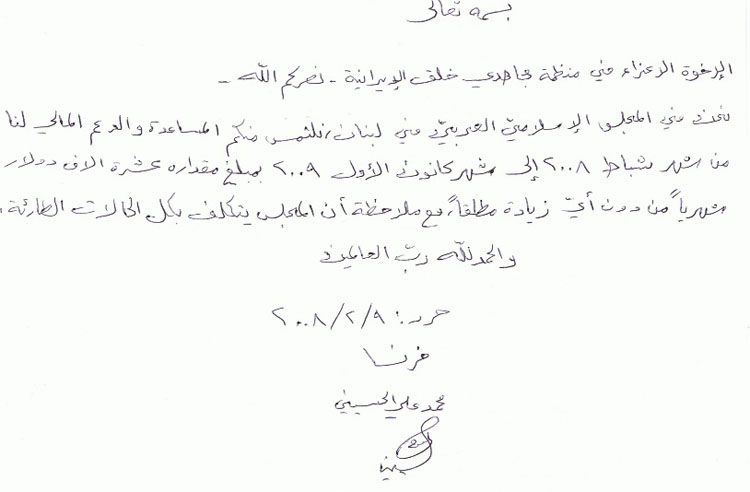 بسمه تعالى
الإخوة الأعزاء في منظمة مجاهدي خلق الإيرانية - نصركم الله -
نحن في المجلس الإسلامي العربي في لبنان، نلتمس منكم المساعدة والدعم المالي لنا
من شهر شباط ٢٠٠٨ إلى شهر كانون الأول ٢٠٠٩ بمبلغ مقداره عشرة الاف دولار
شهرياً من دون أيّ زيادة مطلقاً، مع ملاحظة أن المجلس يتكلف بكل الحالات الطارئة.
والحمد لله ربّ العالمين
حرر: ٢٠٠٨/٢/٩
فرنسا
محمد علي الحسيني